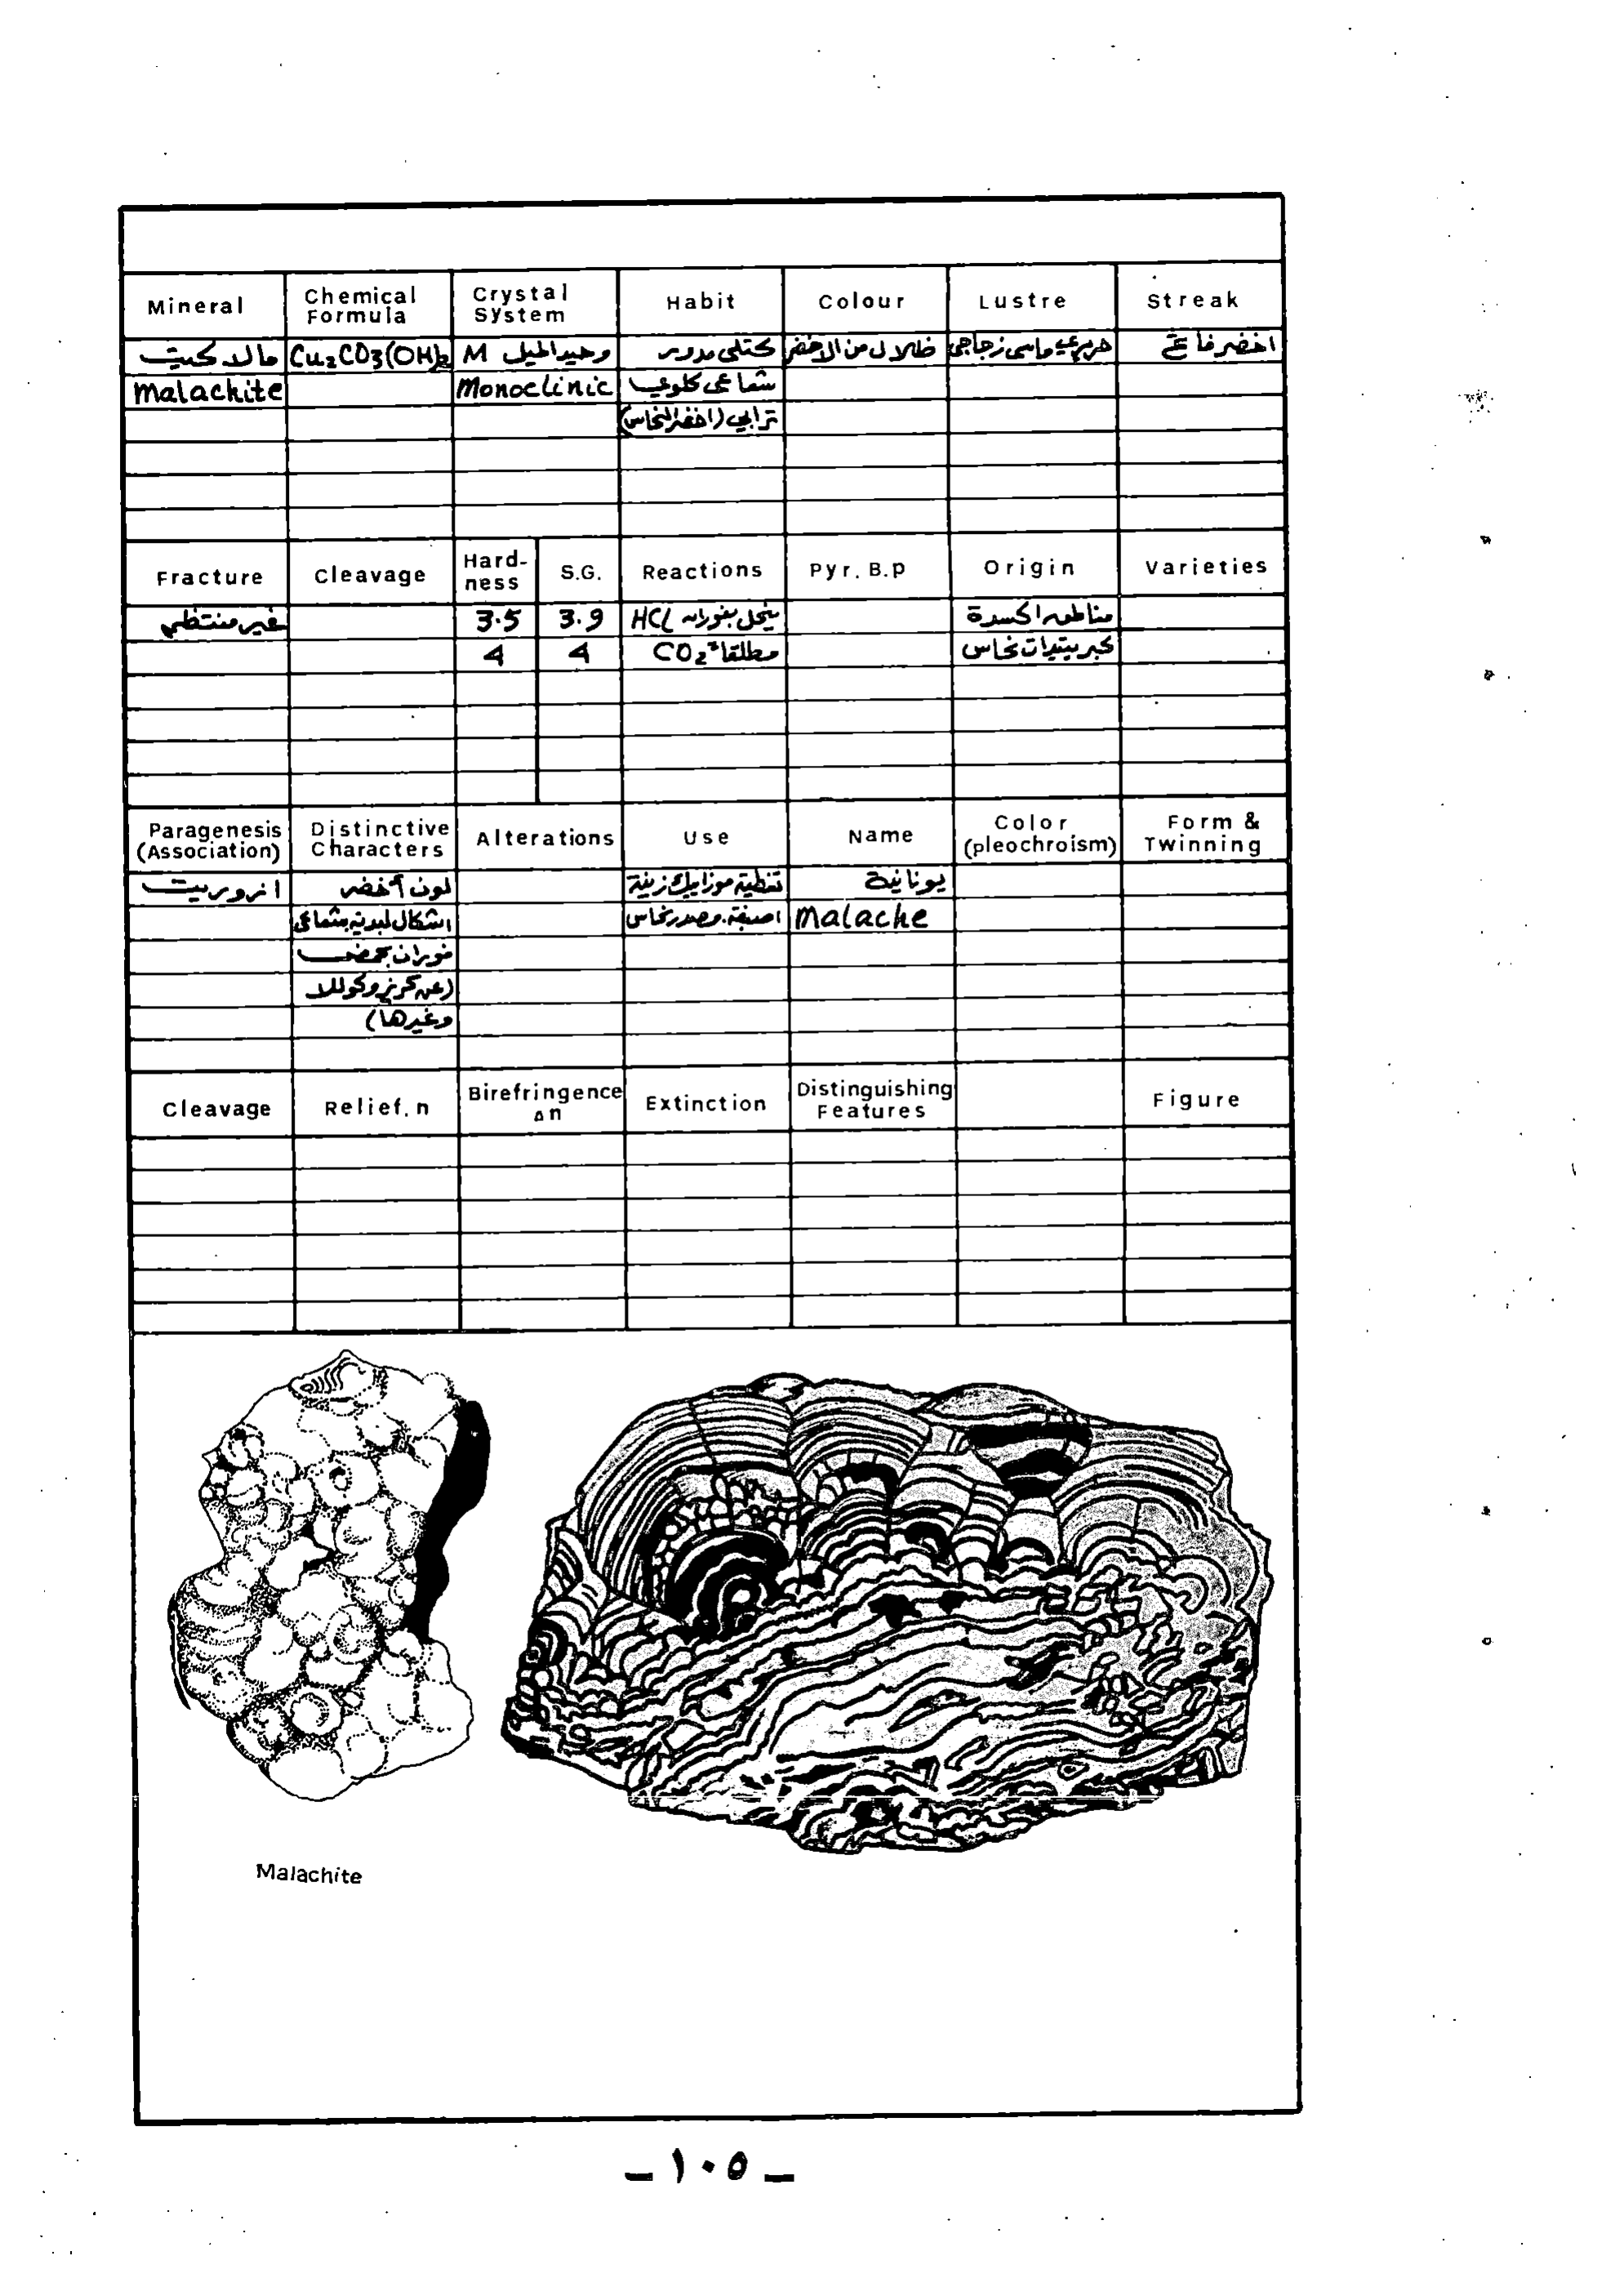 Mineral
Chemical
Formula
Crystal
System
Habit
Colour
Lustre
Streak
مالاكيت
Cu₂CO₃(OH)₂
M وحيد الميل
كتلي مدور
ظلال من الاخضر
حريري ماسي زجاجي
اخضر فاتح
Malachite
Monoclinic
شعاعي كلوي
ترابي (اخضر النحاس)
Fracture
Cleavage
Hard-
ness
S.G.
Reactions
Pyr. B.p
Origin
Varieties
غير منتظم
3.5
3.9
ينحل بفوران HCl
مناطق اكسدة
4
4
مطلقاً CO₂
كبريتيدات نحاس
Paragenesis
(Association)
Distinctive
Characters
Alterations
Use
Name
Color
(pleochroism)
Form &
Twinning
ازوريت
لون أخضر
تغطية موزاييك زينة
يونانية
اشكال لبدية شعاعي
اصبغة. مصدر نحاس
Malache
فوران بحمض
(عن كريزوكوللا
وغيرها)
Cleavage
Relief. n
Birefringence
Δn
Extinction
Distinguishing
Features
Figure
Malachite
- ١٠٥ -